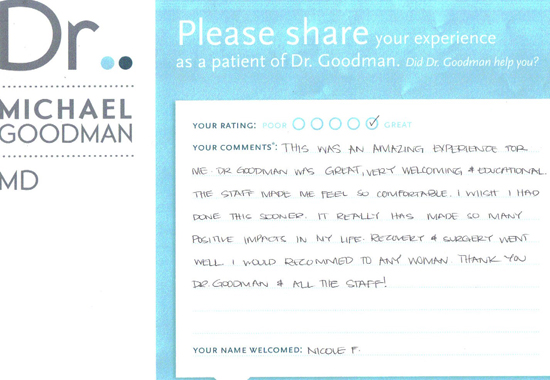 Dr..
MICHAEL
GOODMAN
MD
Please share your experience
as a patient of Dr. Goodman. Did Dr. Goodman help you?
YOUR RATING: POOR GREAT
YOUR COMMENTS*: THIS WAS AN AMAZING EXPERIENCE FOR
ME. DR GOODMAN WAS GREAT, VERY WELCOMING & EDUCATIONAL.
THE STAFF MADE ME FEEL SO COMFORTABLE. I WIISH I HAD
DONE THIS SOONER. IT REALLY HAS MADE SO MANY
POSITIVE IMPACTS IN MY LIFE. RECOVERY & SURGERY WENT
WELL. I WOULD RECOMMED TO ANY WOMAN. THANK YOU
DR. GOODMAN & ALL THE STAFF!
YOUR NAME WELCOMED: NICOLE F.